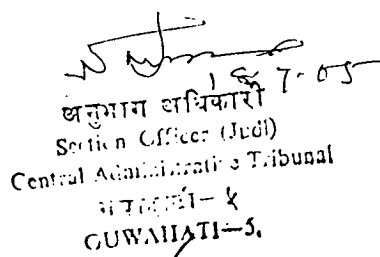 7-05
अनुभाग अधिकारी
Section Officer (Judl)
Central Administrative Tribunal
GUWAHATI-5.